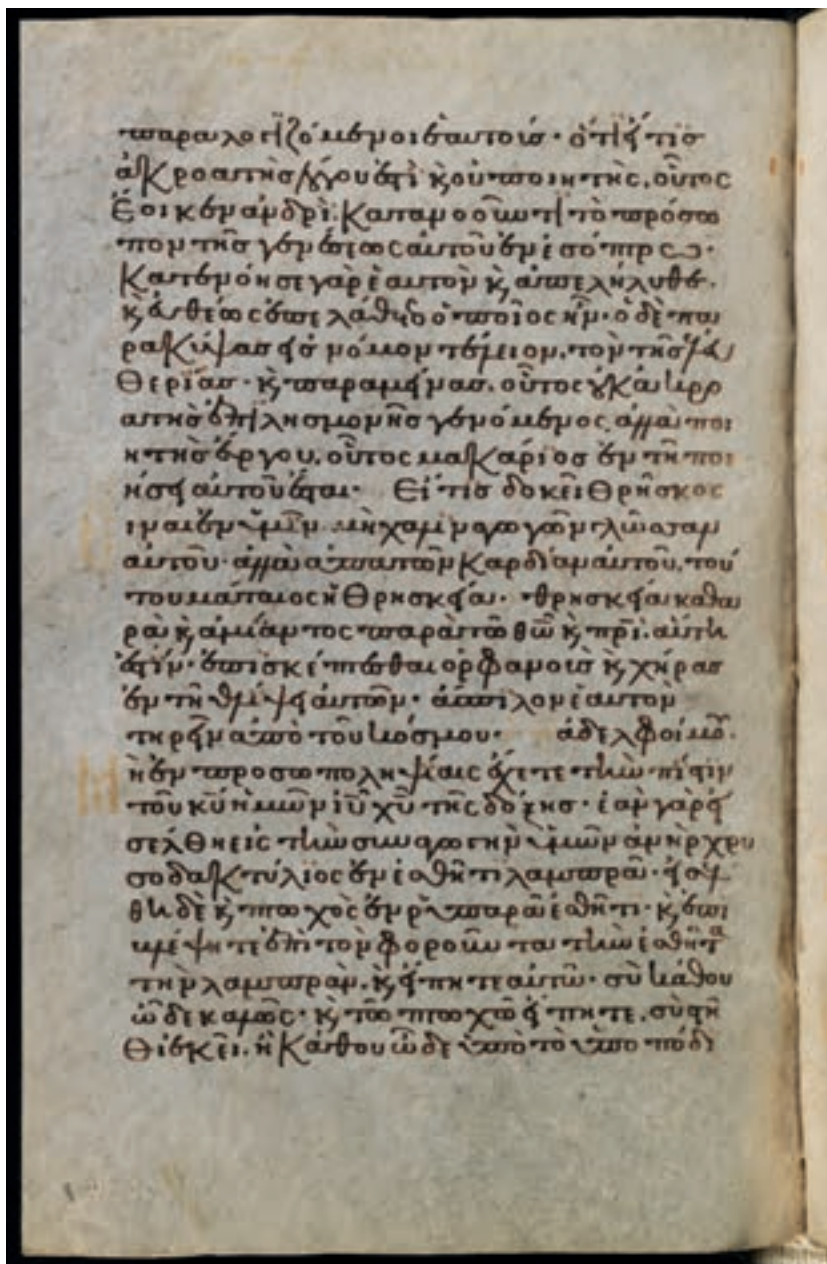 παραλογιζόμενοι ἑαυτοῖς· ὅτι εἴ τις
ἀκροατὴς λόγου ἐστὶ κ̀ οὐ ποιητὴς, οὗτος
ἔοικεν ἀνδρὶ κατανοοῦντι τὸ πρόσω
πον τῆς γενέσεως αὐτοῦ ἐν ἐσόπτρω·
κατενόησε γὰρ ἑαυτὸν κ̀ ἀπελήλυθε·
κ̀ εὐθέως ἐπελάθετο ὁποῖος ἦν· ὁ δὲ πα
ρακύψας εἰς νόμον τέλειον, τὸν τῆς ἐλευ
θερίας· κ̀ παραμείνας, οὗτος οὐκ ἀκρο
ατὴς ἐπιλησμονῆς γενόμενος, ἀλλὰ ποι
ητὴς ἔργου, οὗτος μακάριος ἐν τῆ ποι
ήσει αὐτοῦ ἔσται· Εἴ τις δοκεῖ θρῆσκος
εἶναι ἐν ὑμῖν μὴ χαλιναγωγῶν γλῶσσαν
αὐτοῦ· ἀλλὰ ἀπατῶν καρδίαν αὐτοῦ, τού
του μάταιος ἡ θρησκεία· θρησκεία καθα
ρὰ κ̀ ἀμίαντος παρὰ τῶ θω κ̀ πρι, αὕτη
ἐστίν· ἐπισκέπτεσθαι ὀρφανοὺς κ̀ χήρας
ἐν τῆ θλίψει αὐτῶν· ἄσπιλον ἑαυτὸν
τηρεῖν ἀπὸ τοῦ κόσμου· ἀδελφοί μου·
μὴ ἐν προσωποληψίαις ἔχετε τὴν πίστιν
τοῦ κυ ἡμῶν ιυ χυ τῆς δόξης· ἐὰν γὰρ εἰ
σέλθη εἰς τὴν συναγωγὴν ὑμῶν ἀνὴρ χρυ
σοδακτύλιος ἐν ἐσθῆτι λαμπρᾶ· εἰσέλ
θη δὲ κ̀ πτωχὸς ἐν ῥυπαρᾶ ἐσθῆτι· κ̀ ἐπι
βλέψητε ἐπὶ τὸν φοροῦντα τὴν ἐσθῆτα
τὴν λαμπρὰν, κ̀ εἴπητε αὐτῶ· σὺ κάθου
ὧδε καλῶς· κ̀ τῶ πτωχῶ εἴπητε, σὺ στῆ
θι ἐκεῖ, ἢ κάθου ὧδε ὑπὸ τὸ ὑποπόδι